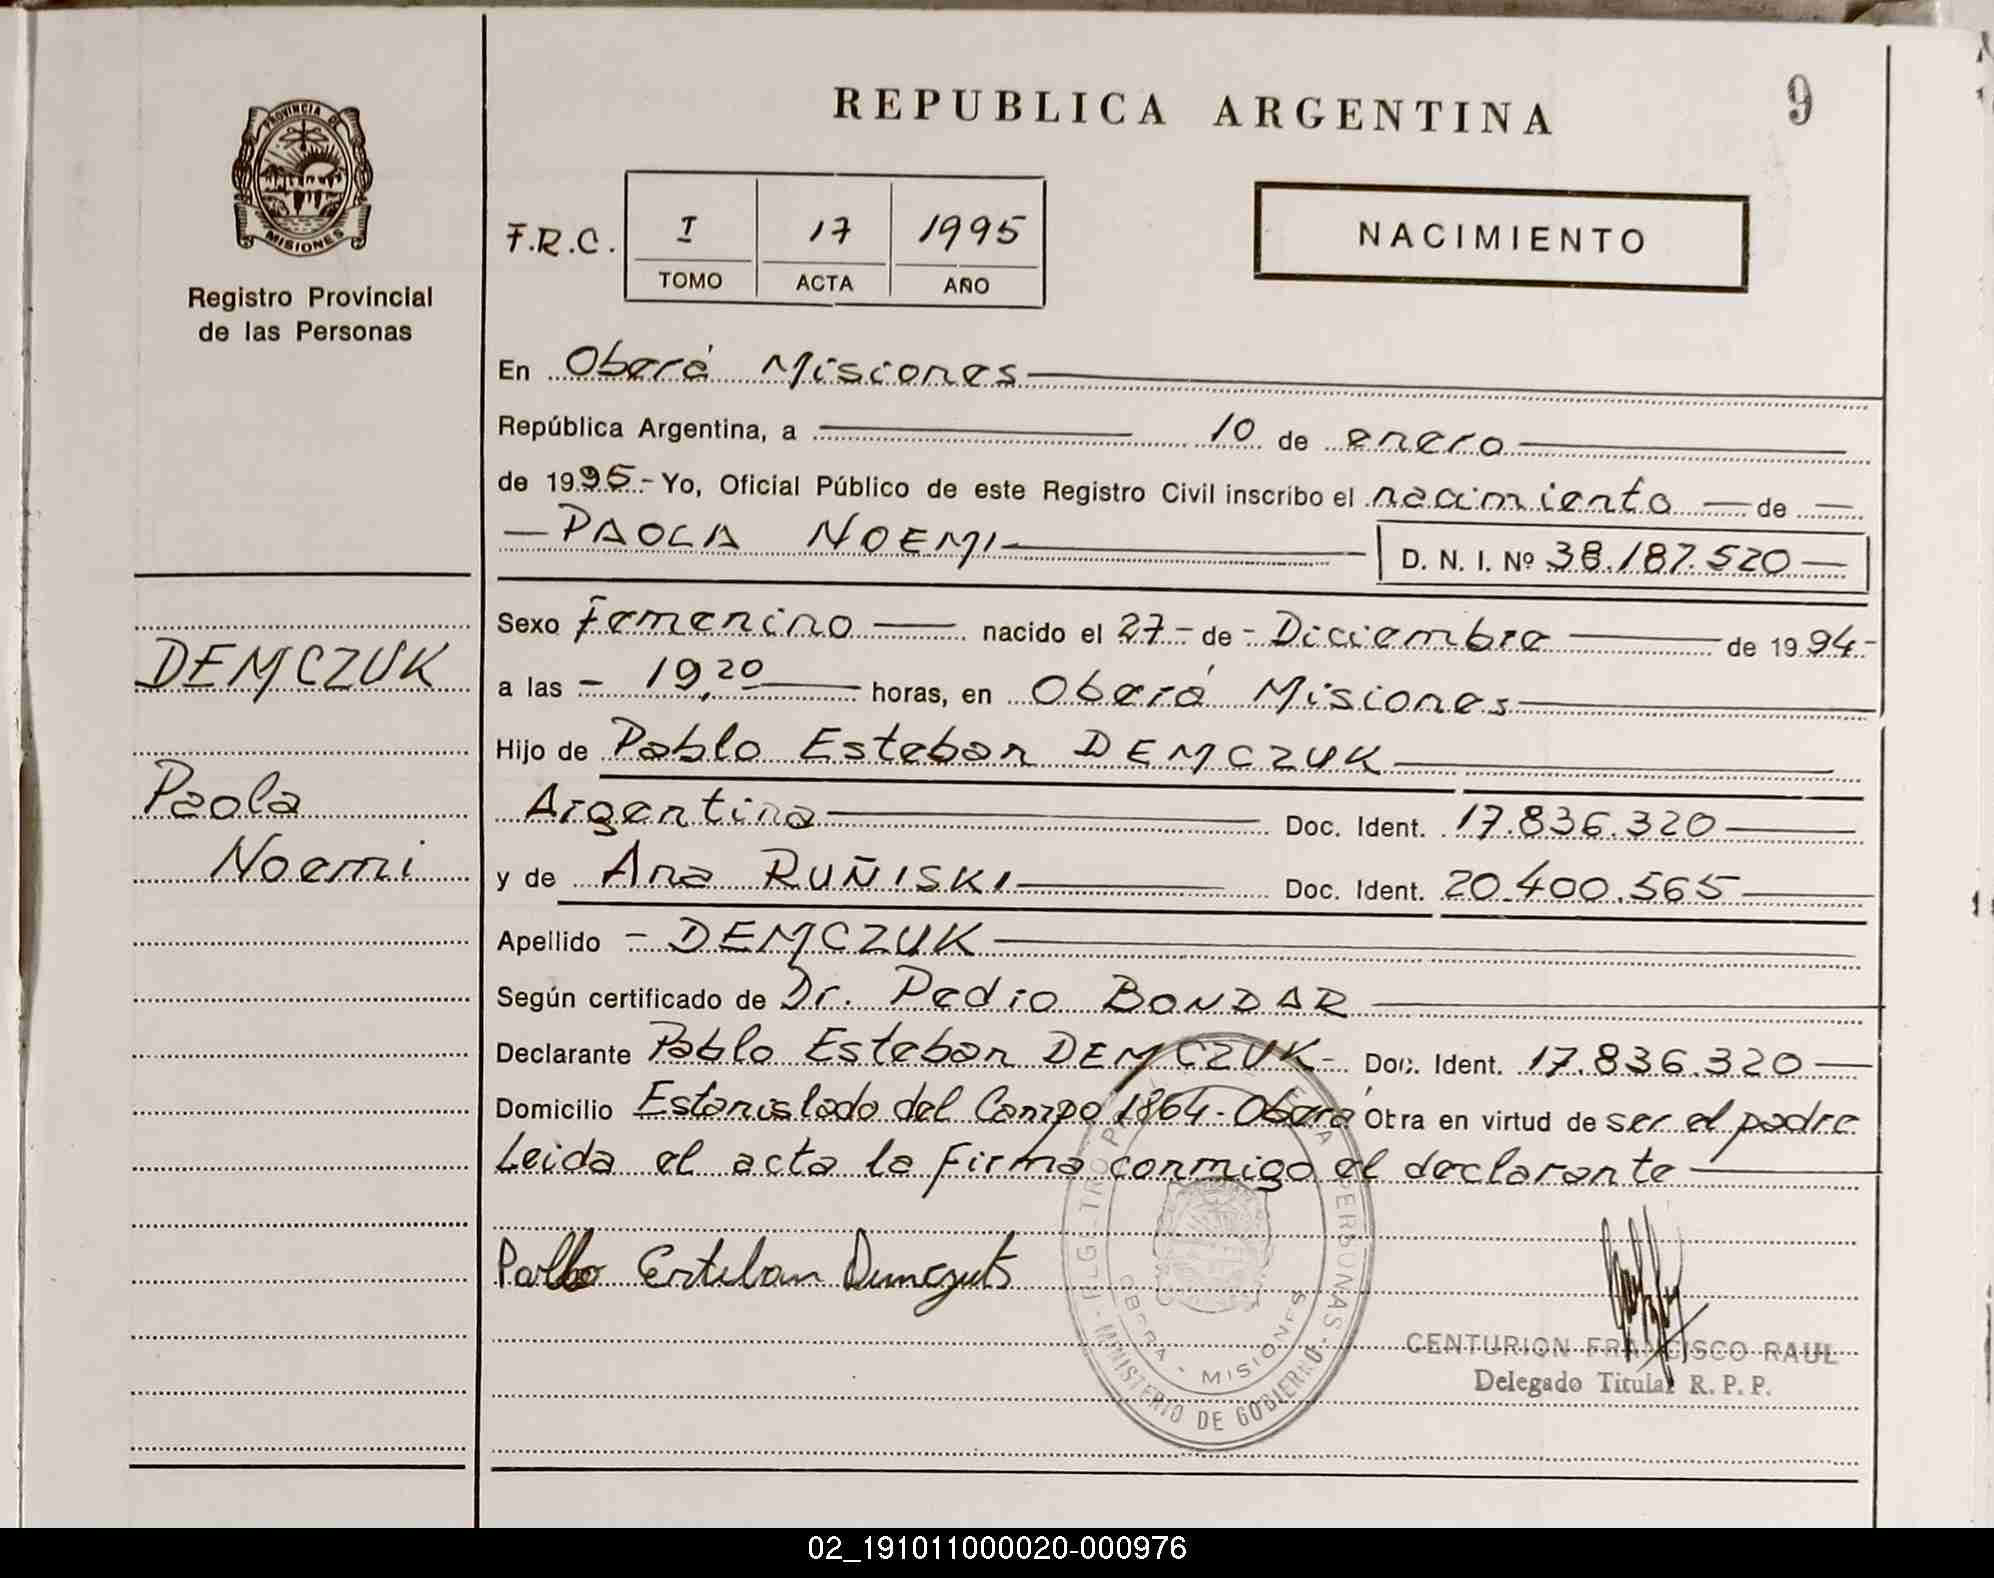 REPUBLICA ARGENTINA
9
PROVINCIA DE
MISIONES
Registro Provincial
de las Personas
F.R.C. I 17 1995
TOMO ACTA AÑO
NACIMIENTO
En Oberá Misiones
República Argentina, a 10 de enero
de 1995.- Yo, Oficial Público de este Registro Civil inscribo el nacimiento de
PAOLA NOEMI D. N. I. Nº 38.187.520
DEMCZUK
Paola
Noemi
Sexo Femenino nacido el 27 - de - Diciembre de 1994 -
a las - 19,20 horas, en Oberá Misiones
Hijo de Pablo Esteban DEMCZUK
Argentina Doc. Ident. 17.836.320
y de Ana RUÑISKI Doc. Ident. 20.400.565
Apellido - DEMCZUK
Según certificado de Dr. Pedro BONDAR
Declarante Pablo Esteban DEMCZUK - Doc. Ident. 17.836.320
Domicilio Estanislado del Campo 1864 - Oberá Obra en virtud de ser el padre
Leida el acta la firma conmigo el declarante
Pablo Esteban Demczuk
PERSONAS
OBERA - MISIONES
MINISTERIO DE GOBIERNO
CENTURION FRANCISCO RAUL
Delegado Titular R. P. P.
02_191011000020-000976